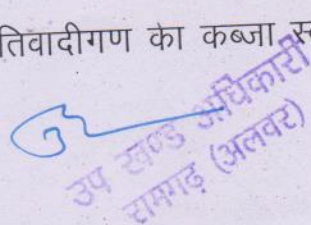 तिवादीगण का कब्जा
उप खण्ड अधिकारी
रामगढ़ (अलवर)